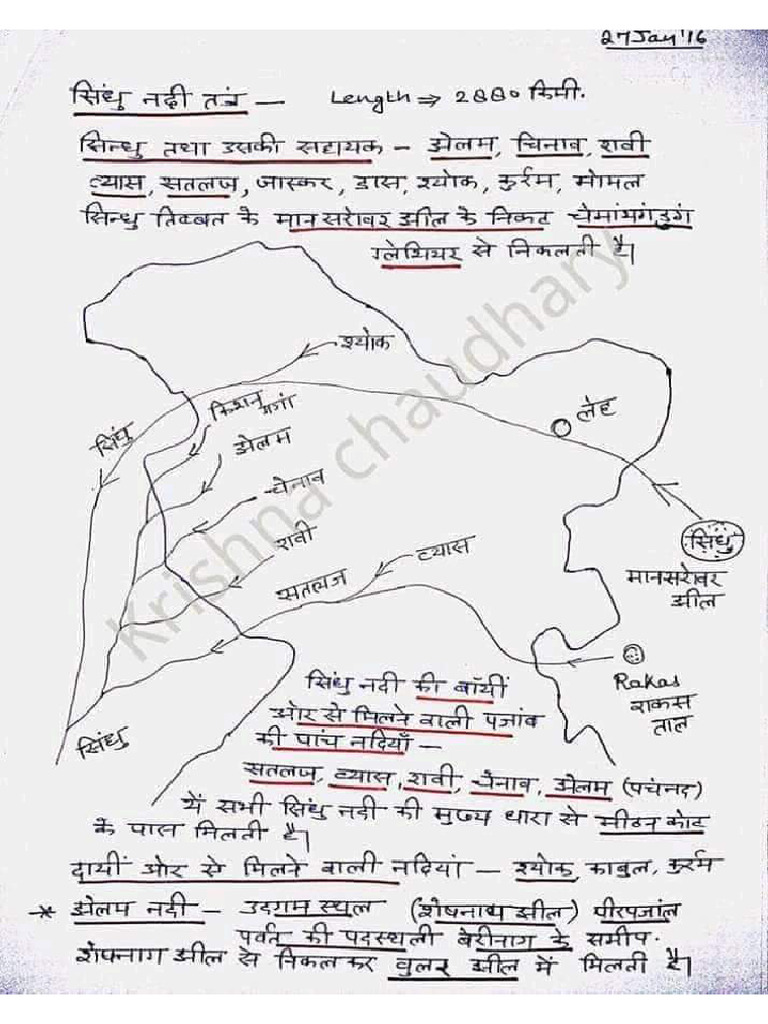 27 Jan'16
सिंधु नदी तंत्र — Length ⇒ 2880 किमी.
सिन्धु तथा उसकी सहायक — झेलम, चिनाव, रावी
व्यास, सतलज, जास्कर, द्रास, श्योक, कुर्रम, गोमल
सिन्धु तिब्बत के मानसरोवर झील के निकट चेमांयगंडुगं
ग्लेशियर से निकलती है।
श्योक
किशन गंगा
लेह
सिंधु
झेलम
चेनाव
रावी
सिंधु
व्यास
सतलज
मानसरोवर
झील
Rakas
राकस
ताल
सिंधु
सिंधु नदी की बाँयीं
ओर से मिलने वाली पजांब
की पांच नदियाँ —
सतलज, व्यास, रावी, चेनाव, झेलम (पचंनद)
ये सभी सिंधु नदी की मुख्य धारा से मीठन कोट
के पास मिलती है।
दायीं ओर से मिलने वाली नदियां — श्योक, काबुल, कुर्रम
* झेलम नदी — उदगम स्थल (शेषनाग झील) पीरपजांल
पर्वत की पदस्थली बेरीनाग के समीप.
शेषनाग झील से निकलकर वुलर झील में मिलती है।
Krishna chaudhary